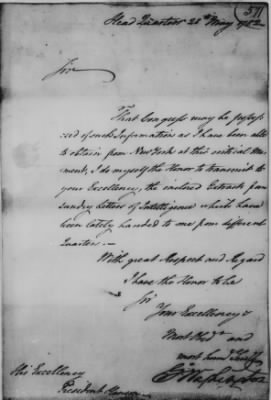 571
Head Quarters 28th May 1782
Sir
That Congress may be possess-
ed of such Information as I have been able
to obtain from New York at this critical Mo-
ment, I do myself the Honor to transmit to
your Excellency, the enclosed Extracts from
sundry Letters of Intelligence which have
been lately handed to me from different
Quarters.—
With great Respect and Regard
I have the Honor to be
Sir
Your Excellency's
Most Obedt and
most humb Servt
Go Washington
His Excellency
President Hanson